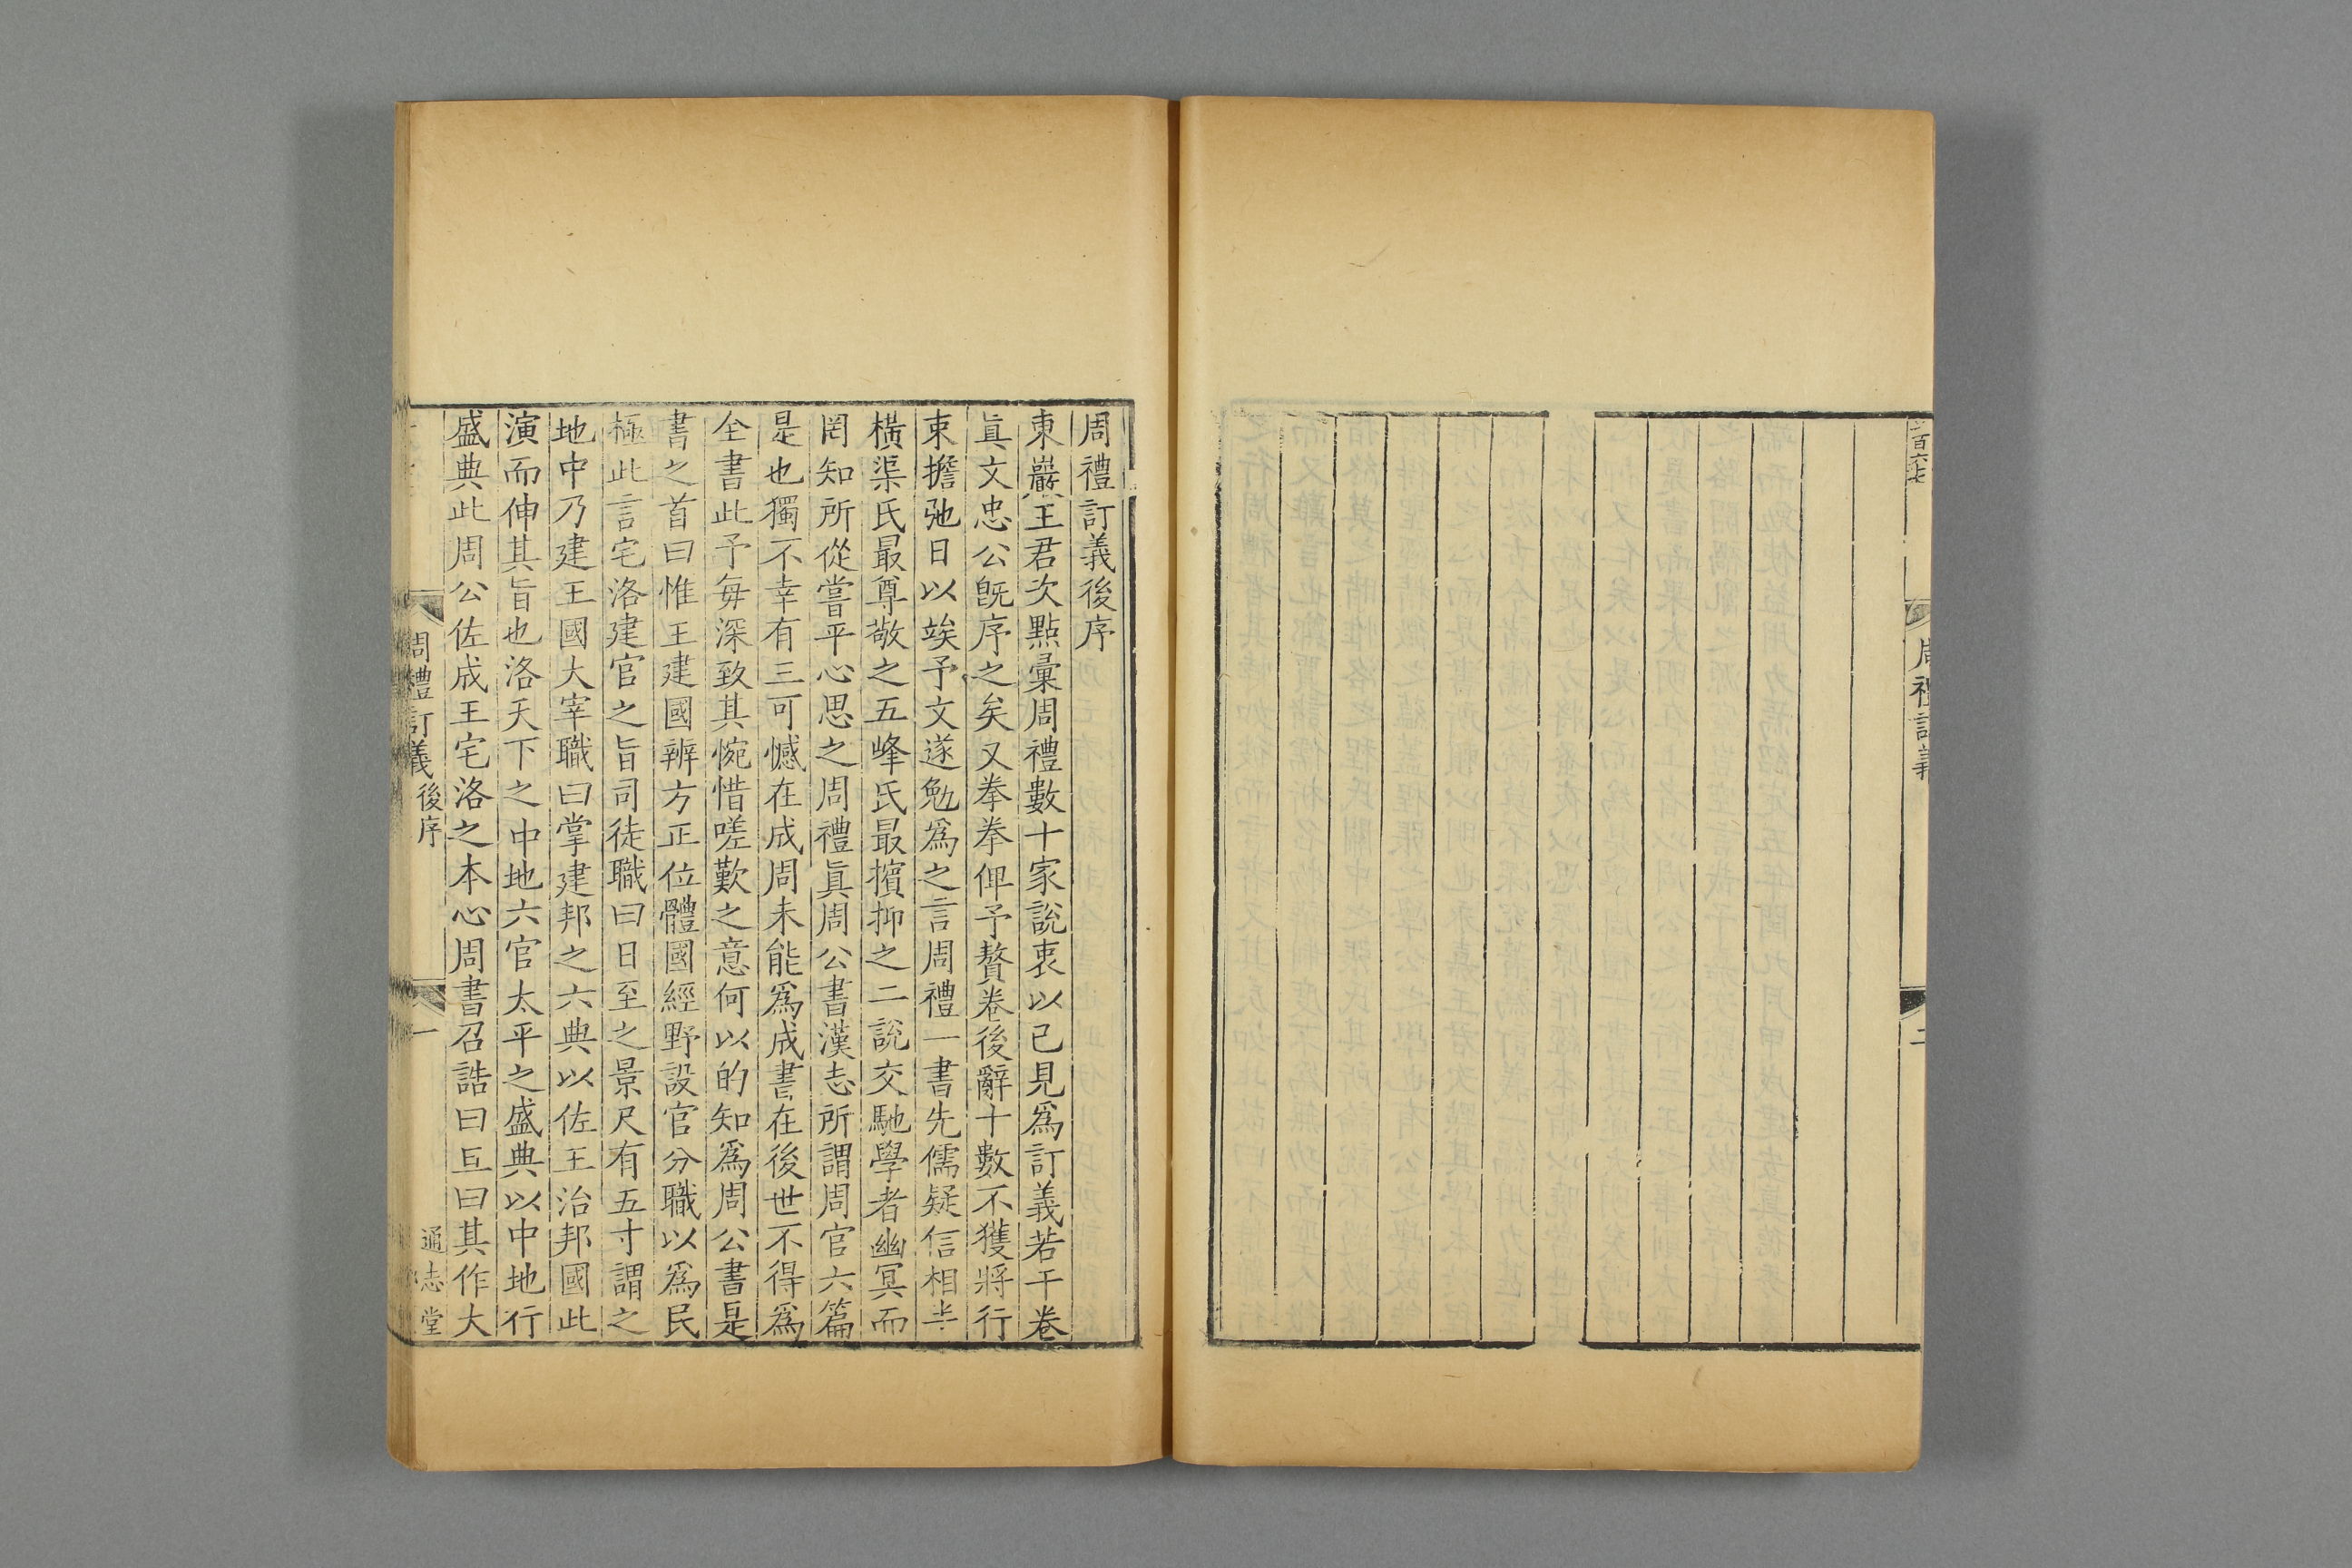 二百六七
周禮訂義
二
周禮訂義後序
東巖王君次點彙周禮數十家說衷以已見爲訂義若干卷
眞文忠公旣序之矣又拳拳俾予贅卷後辭十數不獲將行
束擔弛日以竢予文遂勉爲之言周禮一書先儒疑信相半
橫渠氏最尊敬之五峰氏最擯抑之二說交馳學者幽冥而
罔知所從嘗平心思之周禮眞周公書漢志所謂周官六篇
是也獨不幸有三可憾在成周未能爲成書在後世不得爲
全書此予毎深致其惋惜嗟歎之意何以的知爲周公書是
書之首曰惟王建國辨方正位體國經野設官分職以爲民
極此言宅洛建官之旨司徒職曰日至之景尺有五寸謂之
地中乃建王國大宰職曰掌建邦之六典以佐王治邦國此
演而伸其旨也洛天下之中地六官太平之盛典以中地行
盛典此周公佐成王宅洛之本心周書召誥曰旦曰其作大
周禮訂義後序
一
通志堂